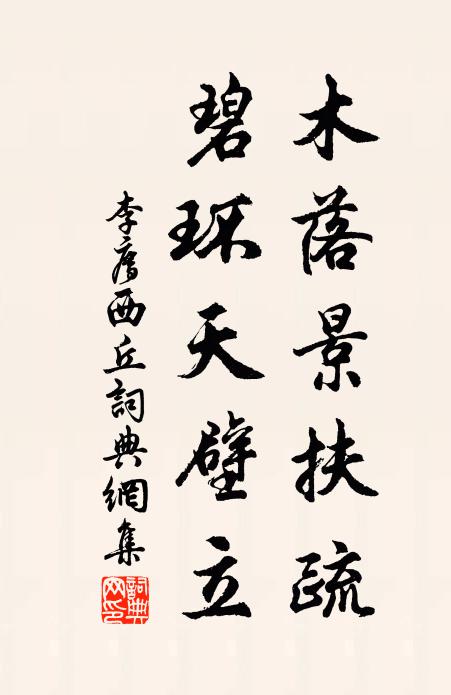 木落景扶疏
碧环天壁立
李廌西丘詞典網集
詞典网印